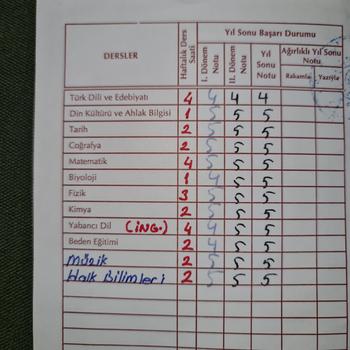 Yıl Sonu Başarı Durumu
DERSLER
Haftalık Ders Saati
I. Dönem Notu
II. Dönem Notu
Yıl Sonu Notu
Ağırlıklı Yıl Sonu Notu
Rakamla
Yazıyla
Türk Dili ve Edebiyatı 4 4 4 4
Din Kültürü ve Ahlak Bilgisi 1 5 5 5
Tarih 2 5 5 5
Coğrafya 2 5 5 5
Matematik 4 5 5 5
Biyoloji 1 4 5 5
Fizik 3 5 5 5
Kimya 2 5 5 5
Yabancı Dil (İNG.) 4 4 5 5
Beden Eğitimi 2 4 5 5
Müzik 2 5 5 5
Halk Bilimleri 2 5 5 5